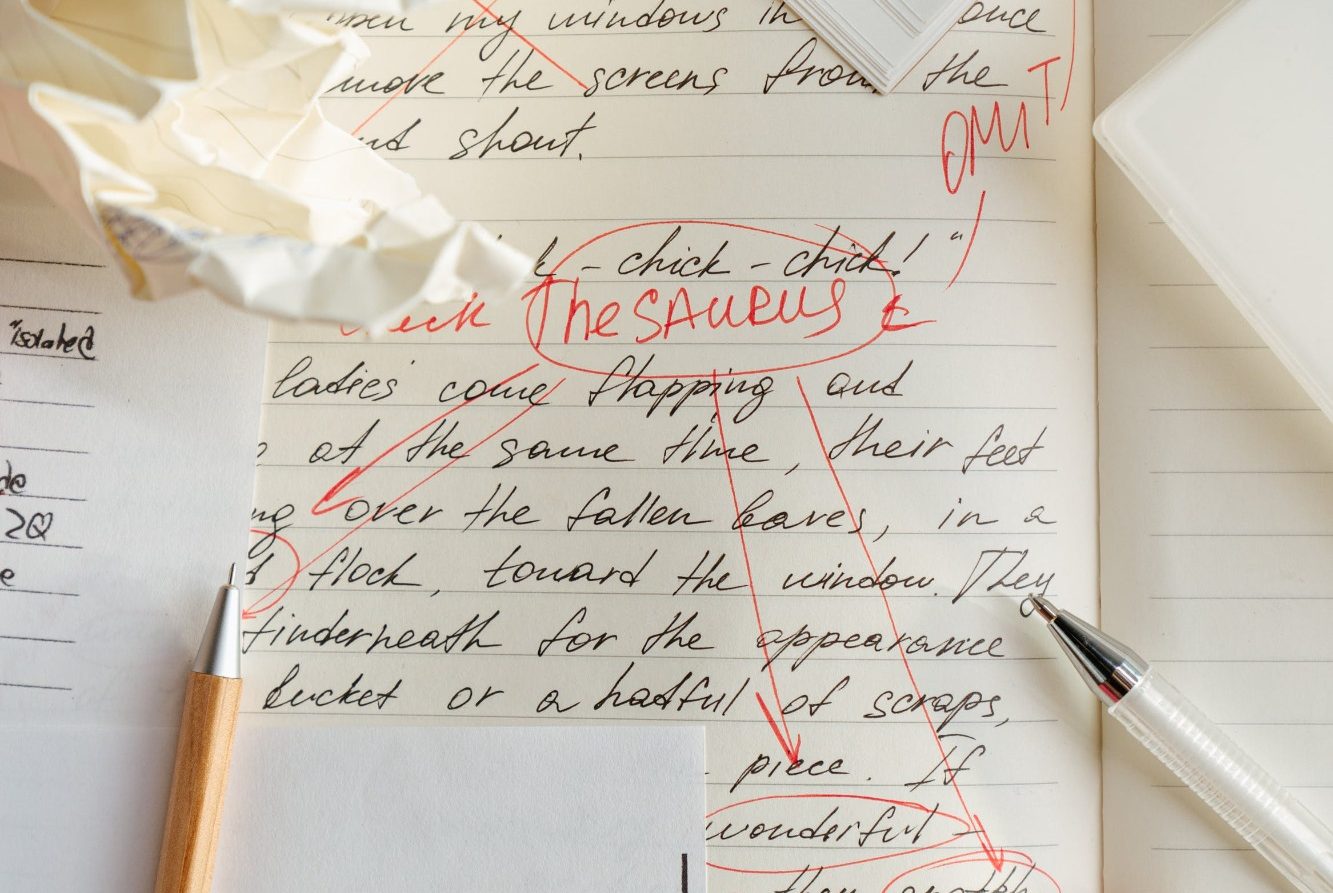 my windows in once
move the screens from the
shout.
OMIT
- chick - chick! "
TheSAURUS
ladies' come flapping and
at the same time, their feet
over the fallen leaves, in a
flock, toward the window. They
underneath for the appearance
bucket or a hatful of scraps,
piece. If
wonderful -
they
"isolated
de
2Q
e